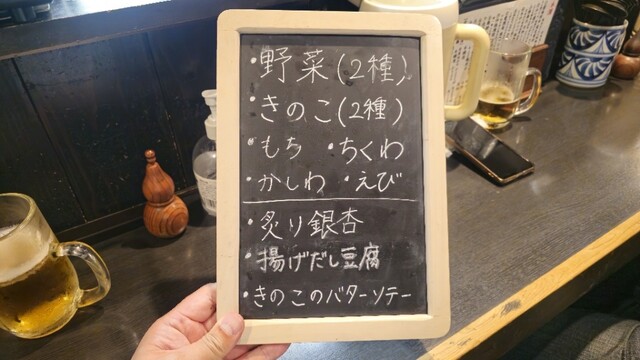 ・野菜(2種)
・きのこ(2種)
・もち ・ちくわ
・かしわ ・えび
・炙り銀杏
・揚げだし豆腐
・きのこのバターソテー